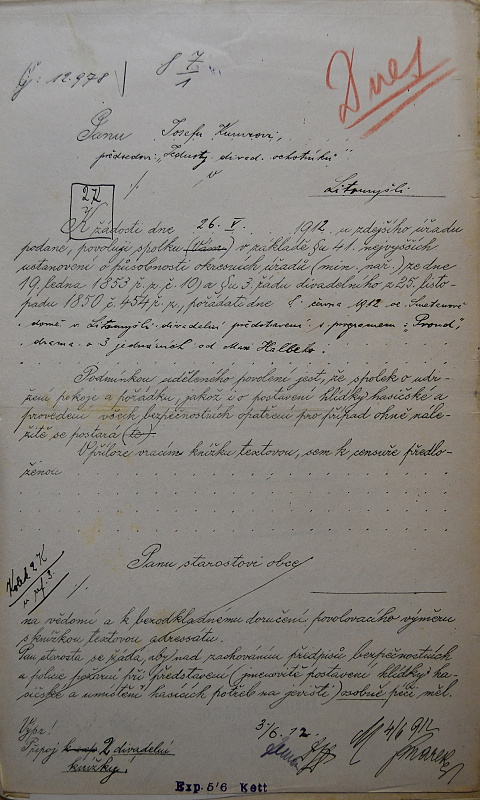 Čj: 12.978
8 7/1
Dnes
Panu Josefu
předsedovi „Jednoty divad. ochotníků"
v
Litomyšli.
2K
K žádosti dne 26. V. 1912 u zdejšího úřadu
podané, povoluji spolku (Vám) v základě §u 41. nejvyšších
ustanovení o působnosti okresních úřadů (min. nař.) ze dne
19. ledna 1853 ř. z. č. 10) a §u 3. řádu divadelního z 25. listo-
padu 1850 č. 454 ř. z., pořádati dne 8. června 1912 ve
domě v Litomyšli divadelní představení s programem: „Proud",
drama o 3 jednáních od Max Halbeho.
Podmínkou uděleného povolení jest, že spolek o udr-
žení pokoje a pořádku, jakož i o postavení hlídky hasičské a
provedení všech bezpečnostních opatření pro případ ohně nále-
žitě se postará (te)
V příloze vracím knížku textovou, sem k censuře předlo-
ženou
Kolek 2 K
Panu starostovi obce
na vědomí a k bezodkladnému doručení povolovacího výměru
s knížkou textovou adressatu.
Pan starosta se žádá, aby nad zachováním předpisů bezpečnostních
a policie požární při představení (jmenovitě postavení hlídky ha-
sičské a umístění hasicích potřeb na jevišti) osobně péči měl.
Vypr!
Připoj 2 divadelní
knížky.
3/6. 12.
4/6 912
Marek
Exp. 5/6 Kett